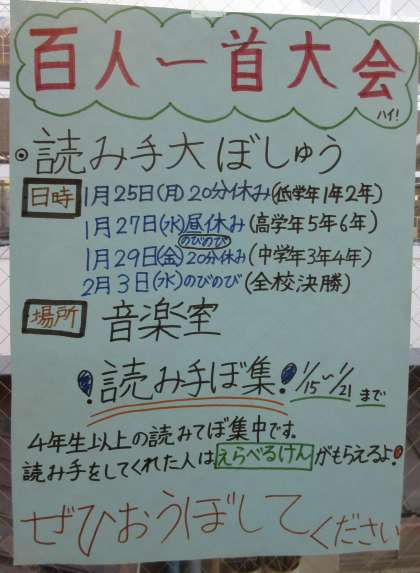 百人一首大会
ハイ!
◎読み手大ぼしゅう
日時 1月25日(月)20分休み(低学年1年2年)
1月27日(水)昼休み(高学年5年6年)
のびのび
1月29日(金)20分休み(中学年3年4年)
2月3日(水)のびのび(全校決勝)
場所 音楽室
!読み手ぼ集! 1/15〜1/21まで
4年生以上の読みてぼ集中です。
読み手をしてくれた人はえらべるけんがもらえるよ!
ぜひおうぼしてください